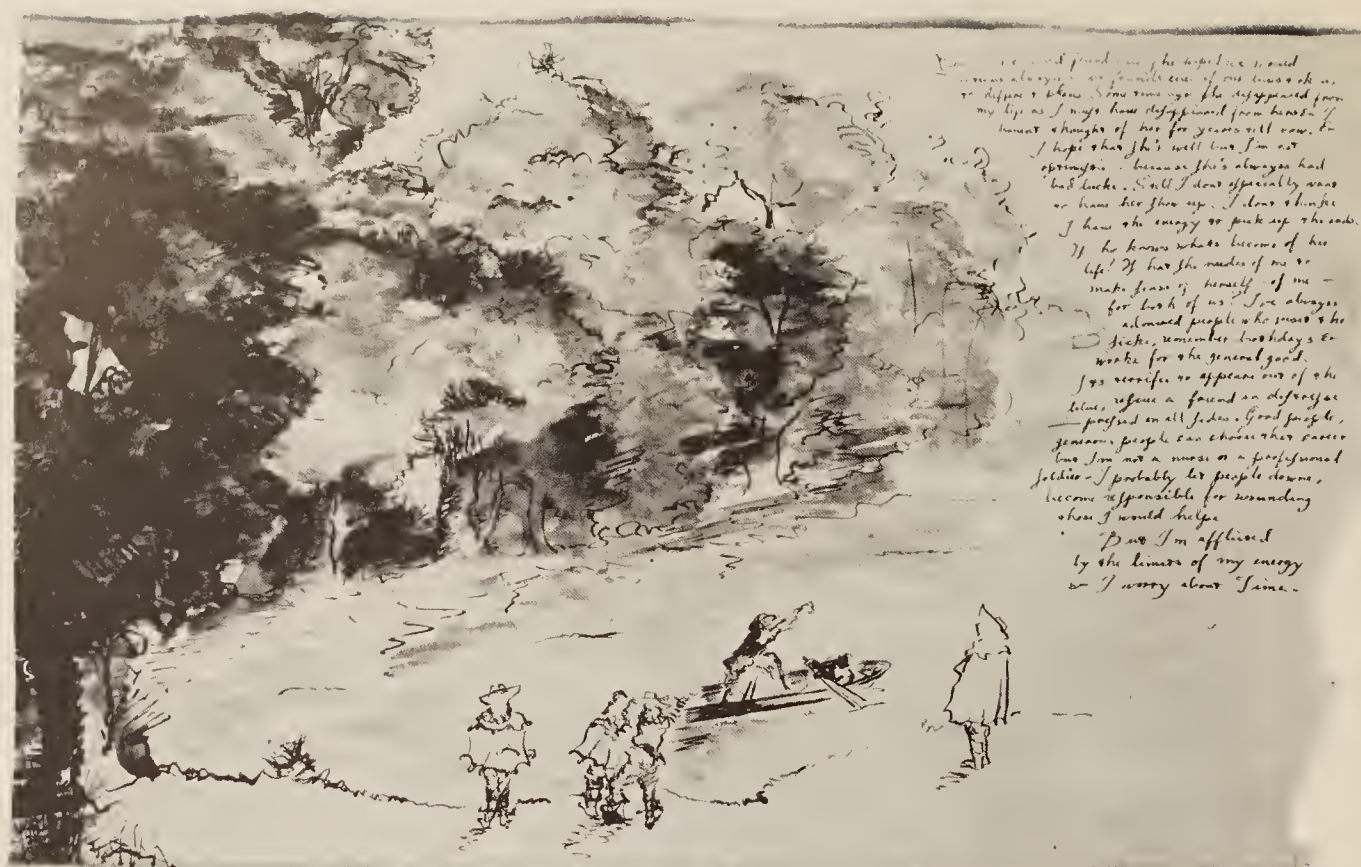 found she hoped we would
always friends one of us
different Some time ago she disappeared from
my life as I must have disappeared from hers & I
havent thought of her for years till now. &
I hope that she's well but I'm not
because she's always had
bad lucke. Still I dont especially want
to have her show up. I dont thinke
I have the energy to pick up the
If he knows whats become of her
life! If has she needes of me to
make sense of herself - of me —
for both of us! I've always
admired people who the
sicke, remember birthdays &
worke for the general good.
Its terrific to appeare out of the
blue, rescue a friend in distresse
— pressed on all sides. Good people,
generous people can choose that career
but I'm not a nurse or a professional
soldier - I probably let people downe,
become responsible for wounding
those I would helpe
But I'm afflicted
by the limits of my energy
& I worry about Time.